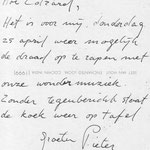 Hoi Edzard,
Het is voor mij, donderdag
25 april weer mogelijk
de draad op te rapen met
onze wondermuziek!
Zonder tegenbericht staat
de koek weer op tafel
Groeten Pieter